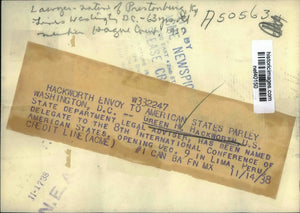 Lawyer - native of Prestonburg, Ky
lives Washington D.C. -
member Hague Court
A50563
NEWSPAPER
historicimages.com
neh40750
W332247
HACKWORTH ENVOY TO AMERICAN STATES PARLEY
WASHINGTON, D.C. -- GREEN H. HACKWORTH, U.S.
STATE DEPARTMENT LEGAL ADVISER HAS BEEN NAMED
DELEGATE TO THE 8TH INTERNATIONAL CONFERENCE OF
AMERICAN STATES, OPENING DEC. 9 IN LIMA, PERU.
CREDIT LINE (ACME) #1 CAN BA FN MX 11/14/38
11-17/38
N.E.A.